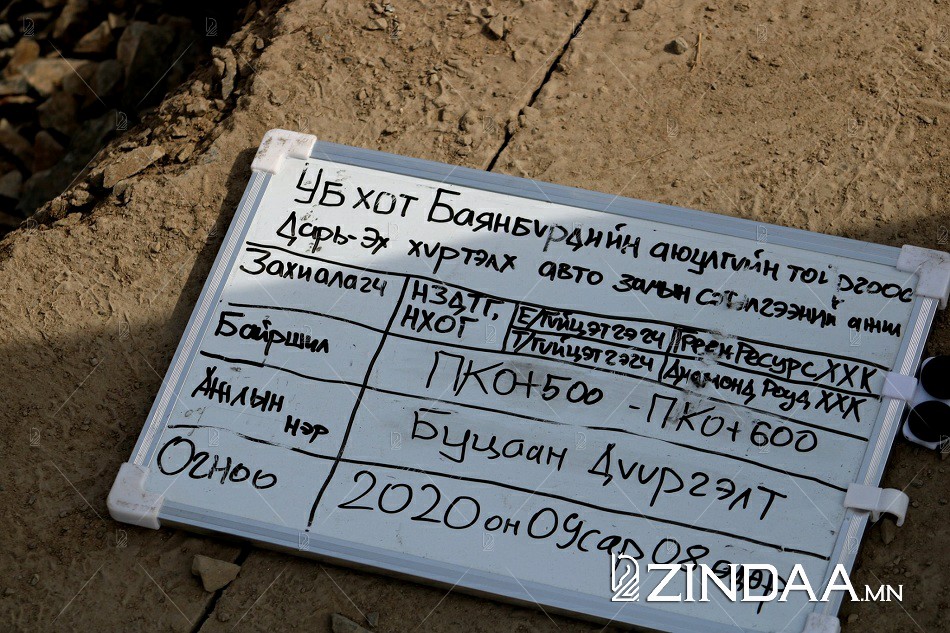 УБ ХОТ Баянбүрдийн аюулгүйн тойргоос
Дарь-Эх хүртэлх авто замын сэтгэлгээний ажил
Захиалагч
НЗДТГ,
НХОГ
Е/Гүйцэтгэгч
Греен Ресурс ХХК
Т/Гүйцэтгэгч
Диамонд Роуд ХХК
Байршил
ПК0+500 -ПК0+600
Ажлын
нэр
Буцаан Дүүргэлт
Огноо
2020 он 09 сар 08 өдөр
ZINDAA.MN